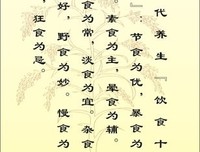 代养生“饮食十
：节食为优，暴食为
。素食为主，晕食为辅。
食为常，淡食为宜。杂食
好，野食为妙。慢食为
，狂食为忌。